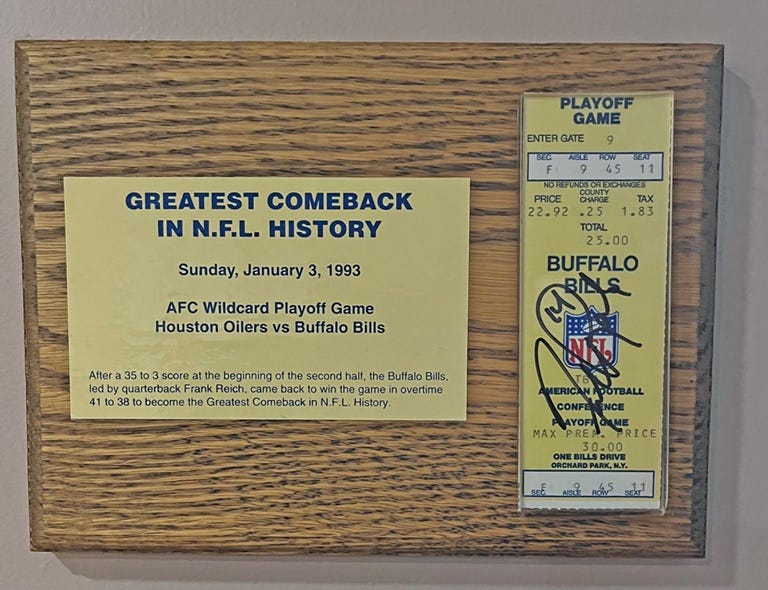 GREATEST COMEBACK
IN N.F.L. HISTORY
Sunday, January 3, 1993
AFC Wildcard Playoff Game
Houston Oilers vs Buffalo Bills
After a 35 to 3 score at the beginning of the second half, the Buffalo Bills,
led by quarterback Frank Reich, came back to win the game in overtime
41 to 38 to become the Greatest Comeback in N.F.L. History.
PLAYOFF
GAME
ENTER GATE 9
SEC. AISLE ROW SEAT
F 9 45 11
NO REFUNDS OR EXCHANGES
COUNTY
PRICE CHARGE TAX
22.92 .25 1.83
TOTAL
25.00
BUFFALO
BILLS
14
NFL
AMERICAN FOOTBALL
CONFERENCE
PLAYOFF GAME
MAX PREM. PRICE
30.00
ONE BILLS DRIVE
ORCHARD PARK, N.Y.
F 9 45 11
SEC. AISLE ROW SEAT